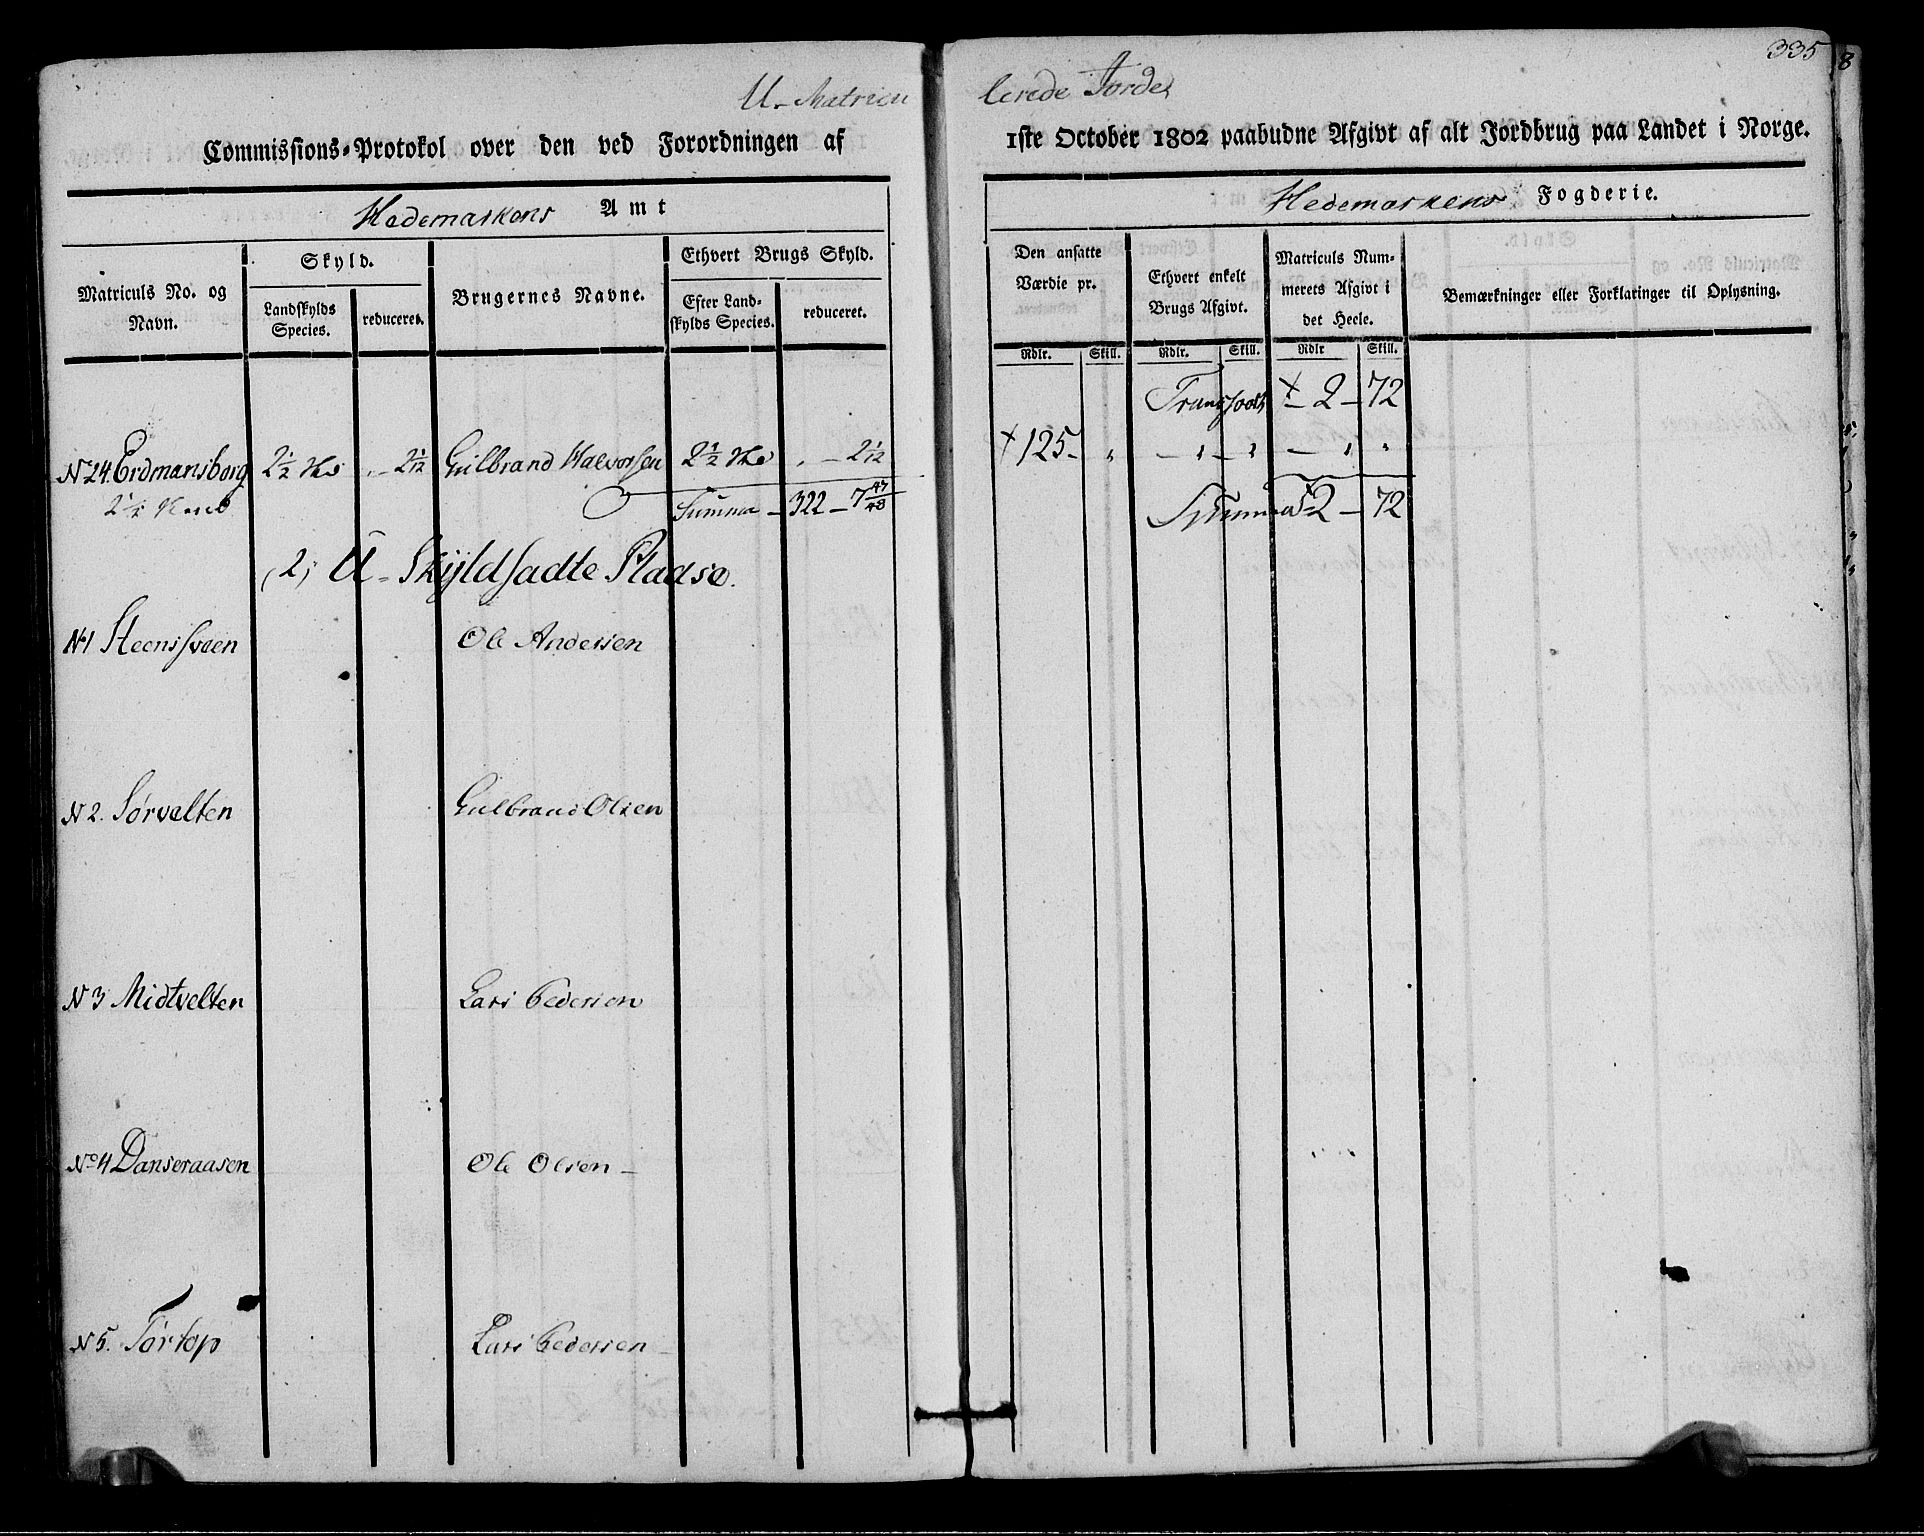 335
8
U-Matricu lerede Jorder
Commissions-Protokol over den ved Forordningen af 1ste October 1802 paabudne Afgivt af alt Jordbrug paa Landet i Norge.
Hedemarkens Amt
Hedemarkens Fogderie.
Matriculs No. og Navn.
Skyld.
Landskylds Species.
reduceret.
Brugernes Navne.
Ethvert Brugs Skyld.
Efter Landskylds Species.
reduceret.
Den ansatte Værdie pr.
Ethvert enkelt Brugs Afgivt.
Matriculs Nummerets Afgivt i det Heele.
Bemærkninger eller Forklaringer til Oplysning.
Rdlr. Skill. Rdlr. Skill. Rdlr Skill.
Transport 2 - 72
N 24. Erdmansborg 2½ - 2 1/12 Gulbrand Halvorsen 2½ - 2 1/12 125 -
2½
Summa - 322 - 7 43/48 Summa 2 - 72
2, U-Skyldsadte Pladse.
N 1 Steenssveen Ole Andersen
N 2. Sørvelten Gulbrand Olsen
N 3 Midtvelten Lars Pedersen
No 4 Danseraasen Ole Olsen -
N 5. Tørtop Lars Pedersen -